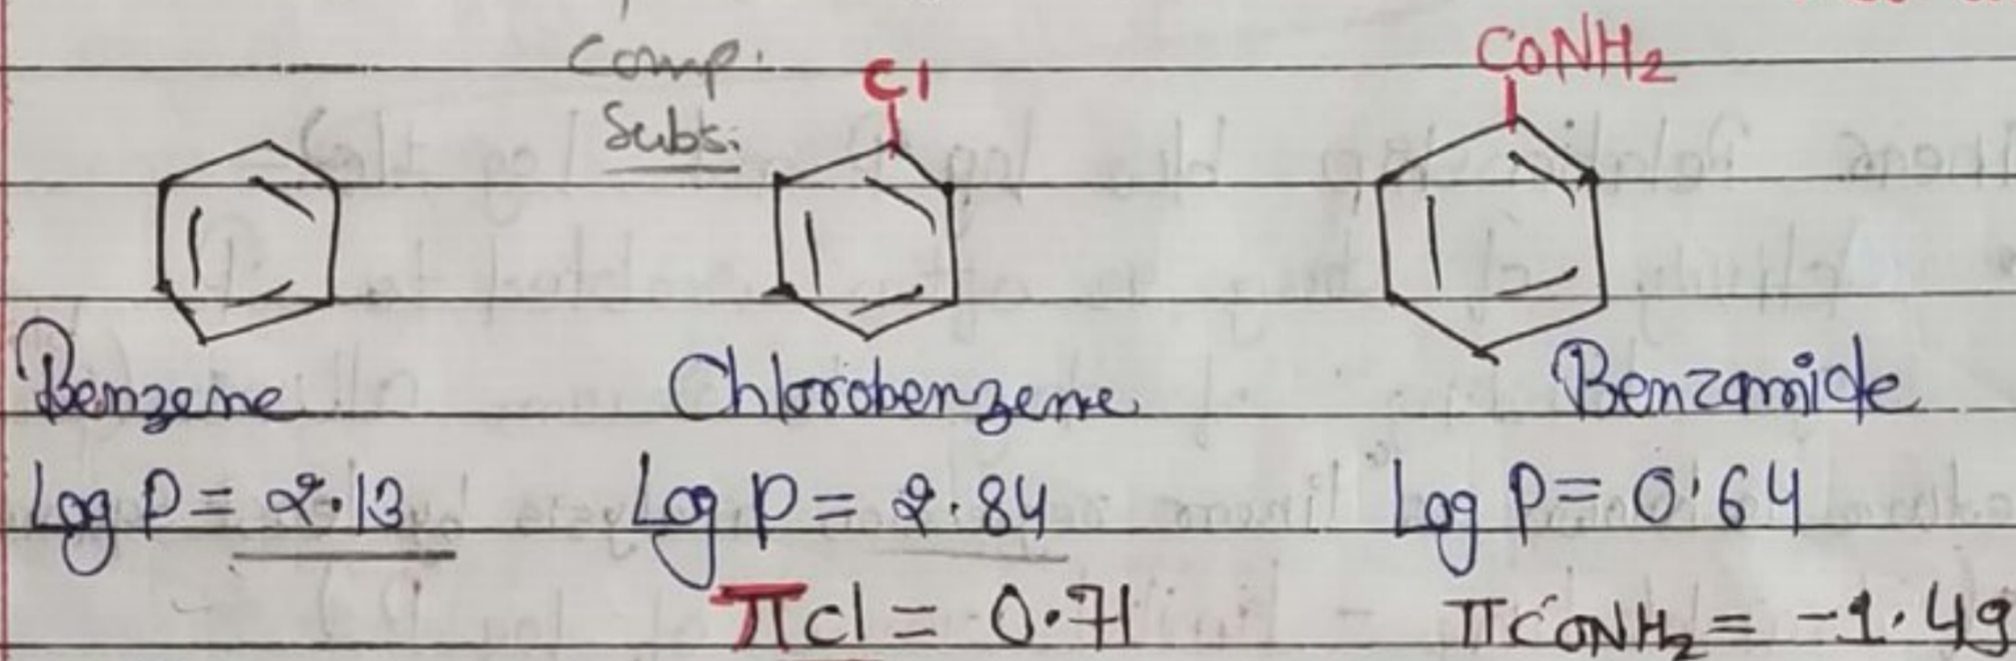 Comp.
Subs.
Cl
CONH2
Benzene
Chlorobenzene
Benzamide
Log P = 2.13
Log P = 2.84
Log P = 0.64
πCl = 0.71
πCONH2 = -1.49